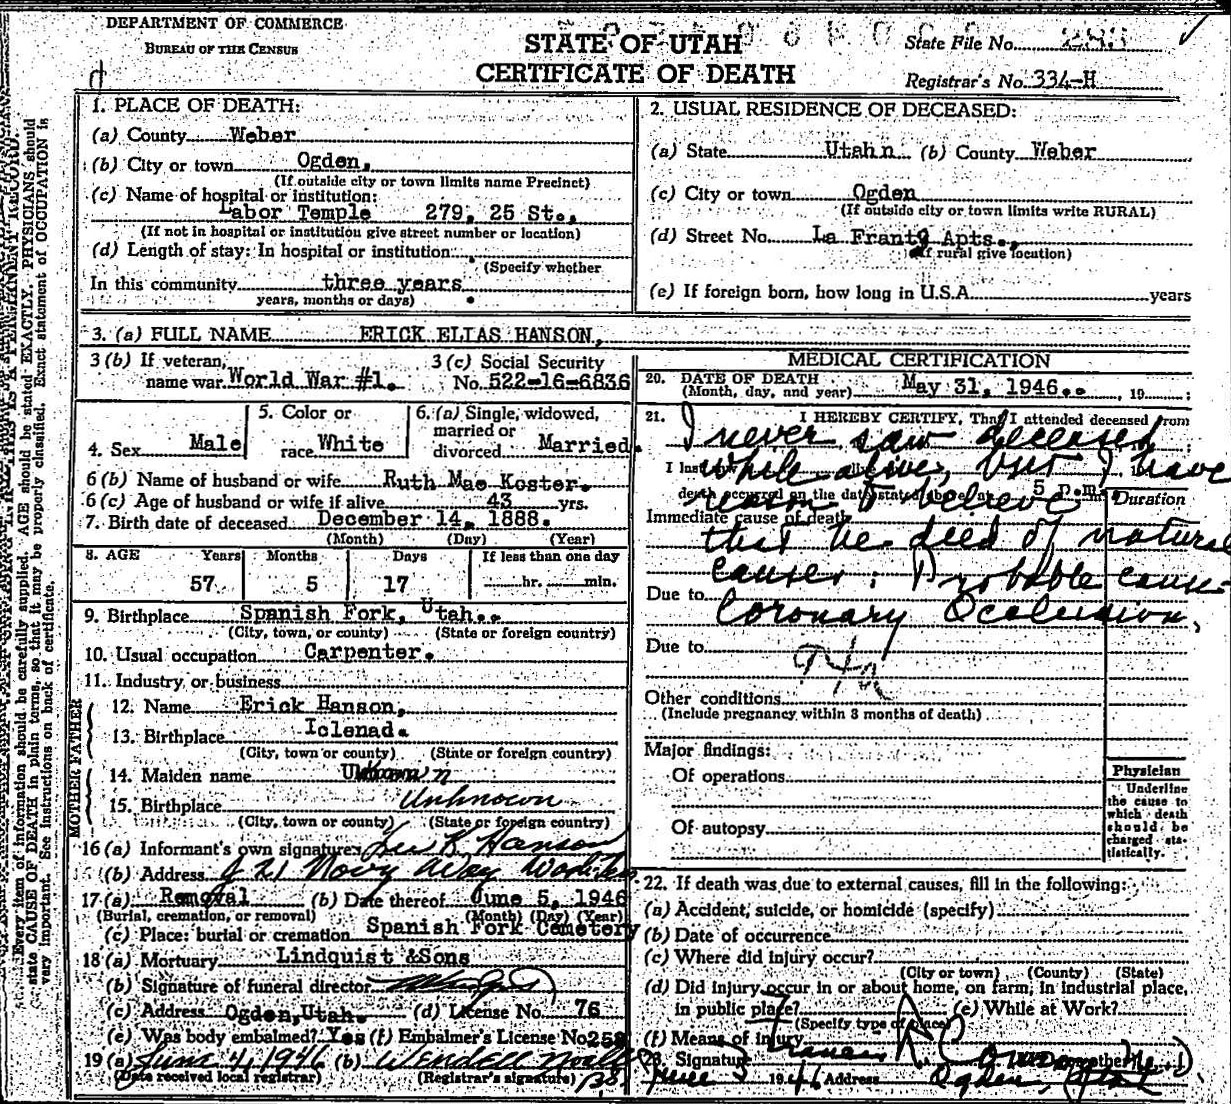 DEPARTMENT OF COMMERCE
BUREAU OF THE CENSUS
STATE OF UTAH
CERTIFICATE OF DEATH
State File No.
Registrar's No. 334-H
1. PLACE OF DEATH:
(a) County Weber
(b) City or town Ogden,
(If outside city or town limits name Precinct)
(c) Name of hospital or institution:
Labor Temple 279, 25 St.,
(If not in hospital or institution give street number or location)
(d) Length of stay: In hospital or institution
(Specify whether
In this community three years
years, months or days)
2. USUAL RESIDENCE OF DECEASED:
(a) State Utahn (b) County Weber
(c) City or town Ogden
(If outside city or town limits write RURAL)
(d) Street No. La Frantz Apts.,
(If rural give location)
(e) If foreign born, how long in U.S.A. years
3. (a) FULL NAME ERICK ELIAS HANSON,
3 (b) If veteran, name war World War #1.
3 (c) Social Security No. 522-16-6836
4. Sex Male
5. Color or race White
6. (a) Single, widowed, married or divorced Married.
6 (b) Name of husband or wife Ruth Mae Koster.
6 (c) Age of husband or wife if alive 43 yrs.
7. Birth date of deceased December 14, 1888.
(Month) (Day) (Year)
8. AGE Years Months Days If less than one day
57 5 17 hr. min.
9. Birthplace Spanish Fork, Utah..
(City, town, or county) (State or foreign country)
10. Usual occupation Carpenter.
11. Industry or business
FATHER
12. Name Erick Hanson,
13. Birthplace Iclenad.
(City, town or county) (State or foreign country)
MOTHER
14. Maiden name Unknown
15. Birthplace Unknown
(City, town or county) (State or foreign country)
16 (a) Informant's own signature K. Hanson
(b) Address Navy Way
17 (a) Removal (b) Date thereof June 5, 1946
(Burial, cremation, or removal) (Month) (Day) (Year)
(c) Place: burial or cremation Spanish Fork Cemetery
18 (a) Mortuary Lindquist &Sons
(b) Signature of funeral director
(c) Address Ogden, Utah. (d) License No. 76
(e) Was body embalmed? Yes (f) Embalmer's License No 258
19 (a) June 4, 1946 (b) Wendell
(Date received local registrar) (Registrar's signature)
MEDICAL CERTIFICATION
20. DATE OF DEATH May 31, 1946.. , 19 ;
(Month, day, and year)
21. I HEREBY CERTIFY, That I attended deceased from
I never saw deceased
while alive, but I have
death occurred on the date stated above at 5 p.m.
reason to believe
Duration
Immediate cause of death
that he died of natural
causes: Probable cause
Due to
Coronary Occlusion,
Due to
Other conditions
(Include pregnancy within 3 months of death)
Major findings:
Of operations
Of autopsy
Physician
Underline
the cause to
which death
should be
charged sta-
tistically.
22. If death was due to external causes, fill in the following:
(a) Accident, suicide, or homicide (specify)
(b) Date of occurrence
(c) Where did injury occur?
(City or town) (County) (State)
(d) Did injury occur in or about home, on farm, in industrial place,
in public place? (e) While at Work?
(Specify type of place)
(f) Means of injury
23. Signature Francis R.
June 1946 Address Ogden, Utah
Every item of information should be carefully supplied. AGE should be stated EXACTLY. PHYSICIANS should
state CAUSE OF DEATH in plain terms, so that it may be properly classified. Exact statement of OCCUPATION is
very important. See instructions on back of certificate.